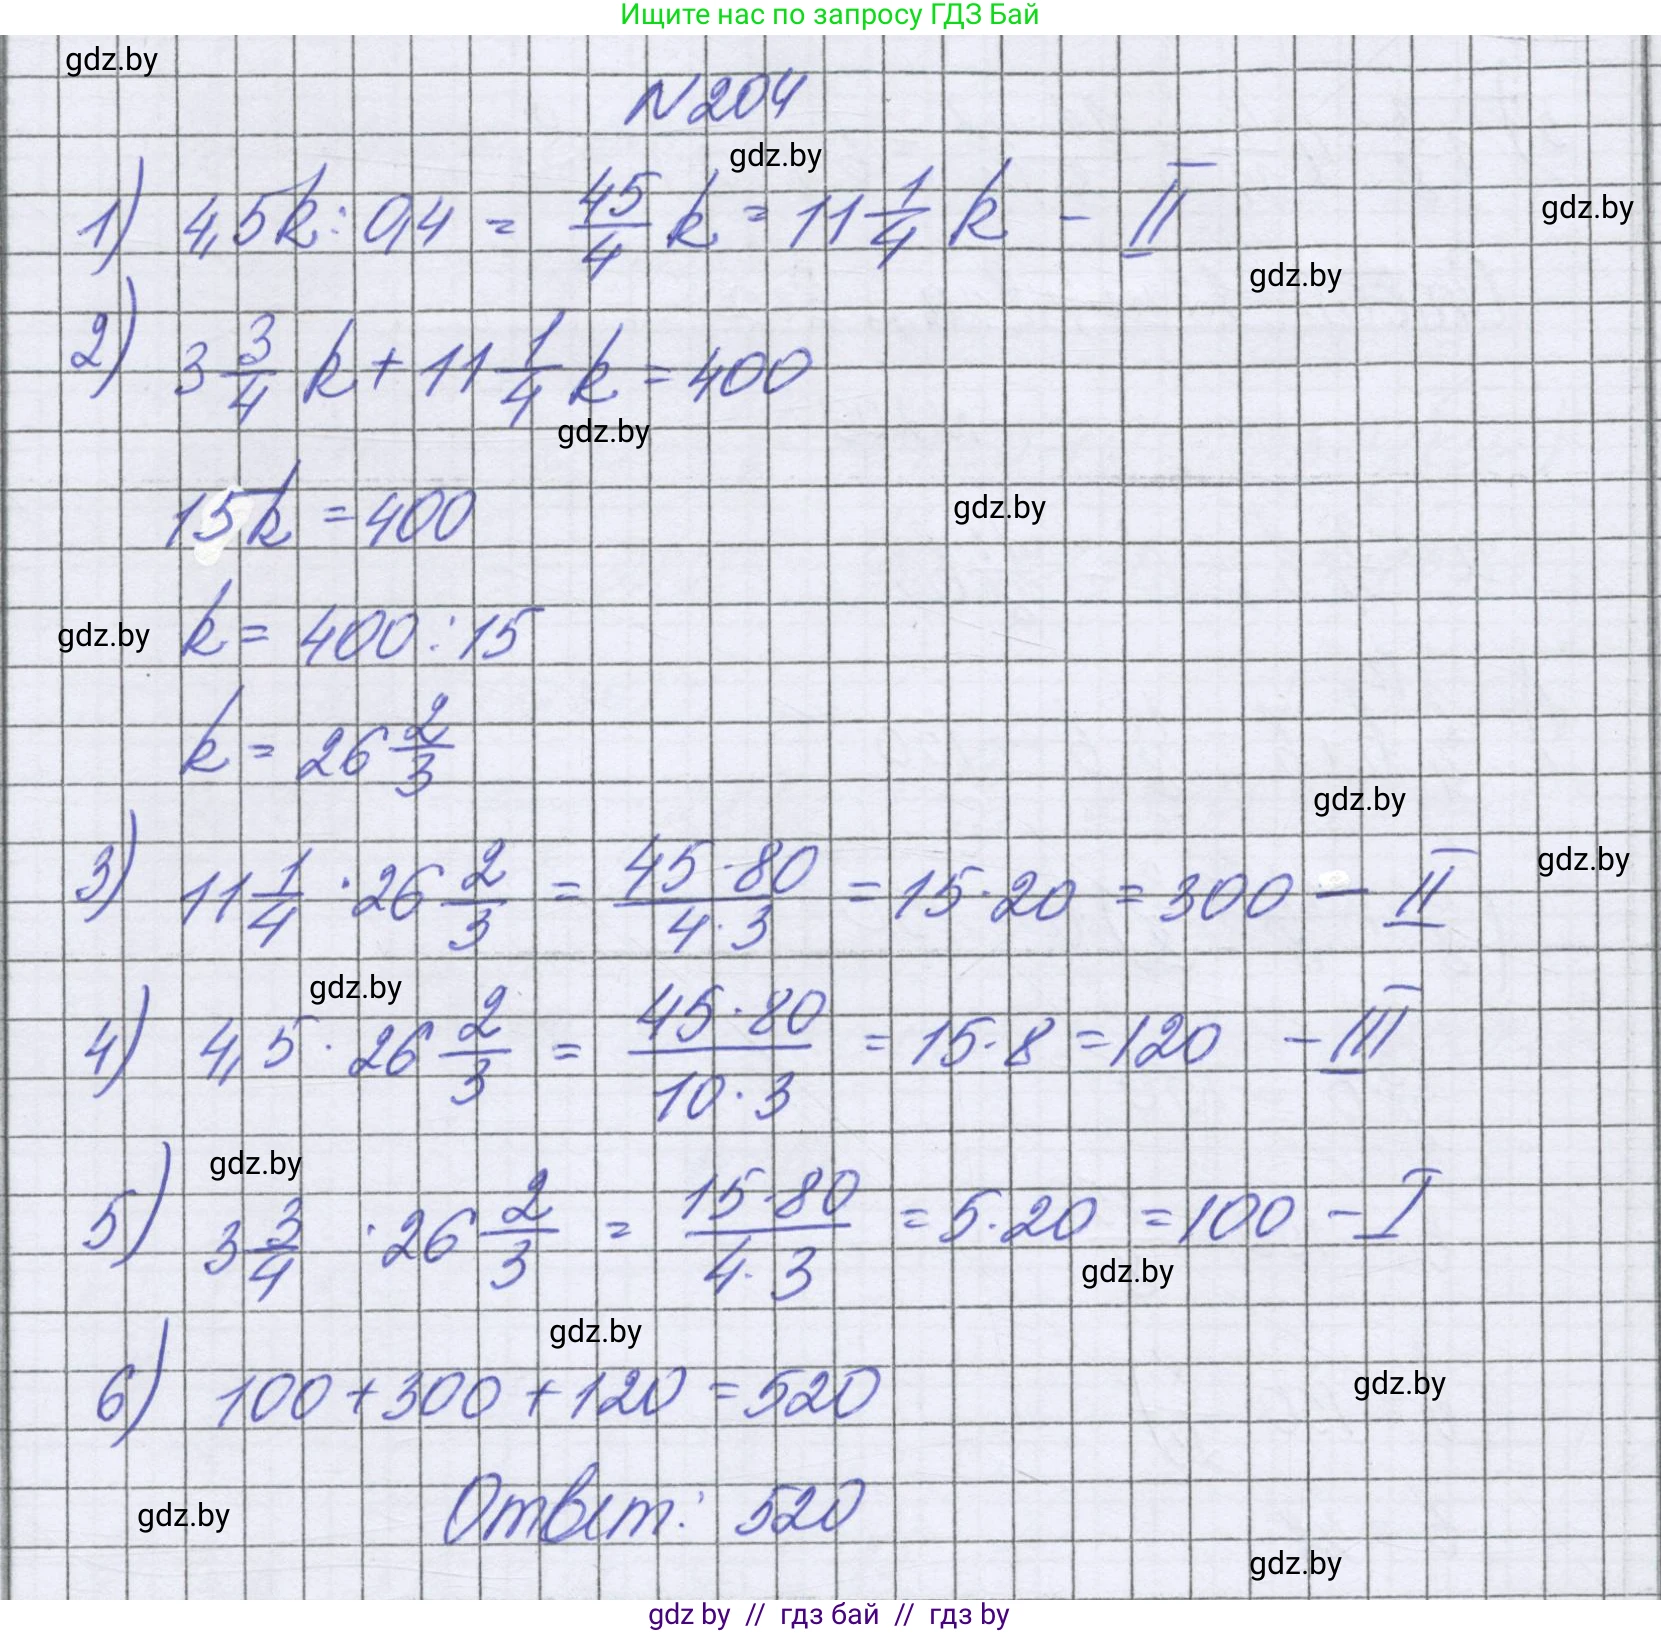 Ищите нас по запросу ГДЗ Бай
gdz.by
N204
gdz.by
1) 4,5k : 0,4 = 45/4 k = 11 1/4 k - II
gdz.by
gdz.by
2) 3 3/4 k + 11 1/4 k = 400
gdz.by
15k = 400
gdz.by
k = 400 : 15
gdz.by
k = 26 2/3
gdz.by
3) 11 1/4 · 26 2/3 = 45·80/4·3 = 15·20 = 300 - II
gdz.by
gdz.by
4) 4,5 · 26 2/3 = 45·80/10·3 = 15·8 = 120 - III
gdz.by
5) 3 3/4 · 26 2/3 = 15·80/4·3 = 5·20 = 100 - I
gdz.by
gdz.by
6) 100 + 300 + 120 = 520
gdz.by
Ответ: 520
gdz.by
gdz.by
gdz by // гдз бай // гдз by